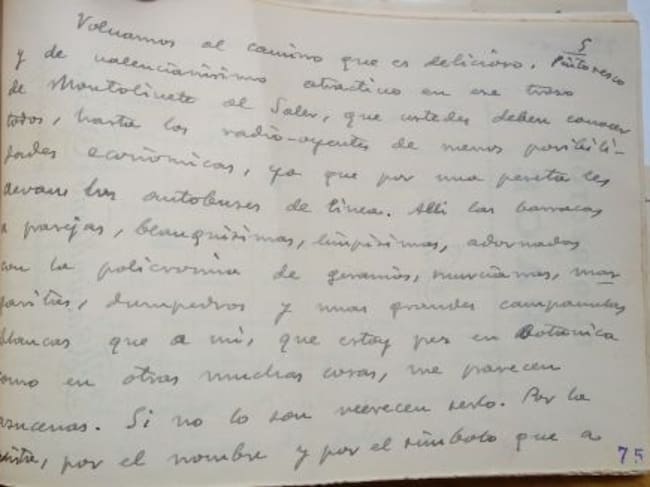 5
Volvamos al camino que es delicioso. Pintoresco
y de valencianísimo atractivo en ese trozo
de Montolivete al Saler, que ustedes deben conocer
todos, hasta los radio-oyentes de menos posibili-
dades económicas, ya que por una peseta les
llevan los autobuses de línea. Allí las barracas
a parejas, blanquísimas, limpísimas, adornadas
con la policromía de geranios, murcianas, mar-
garitas, dompedros y unas grandes campanitas
blancas que a mí, que estoy pez en Botánica
como en otras muchas cosas, me parecen
azucenas. Si no lo son merecen serlo. Por la
, por el nombre y por el símbolo que a
75